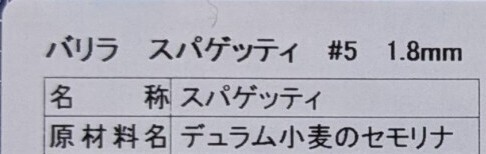 バリラ スパゲッティ #5 1.8mm
名 称 スパゲッティ
原材料名 デュラム小麦のセモリナ